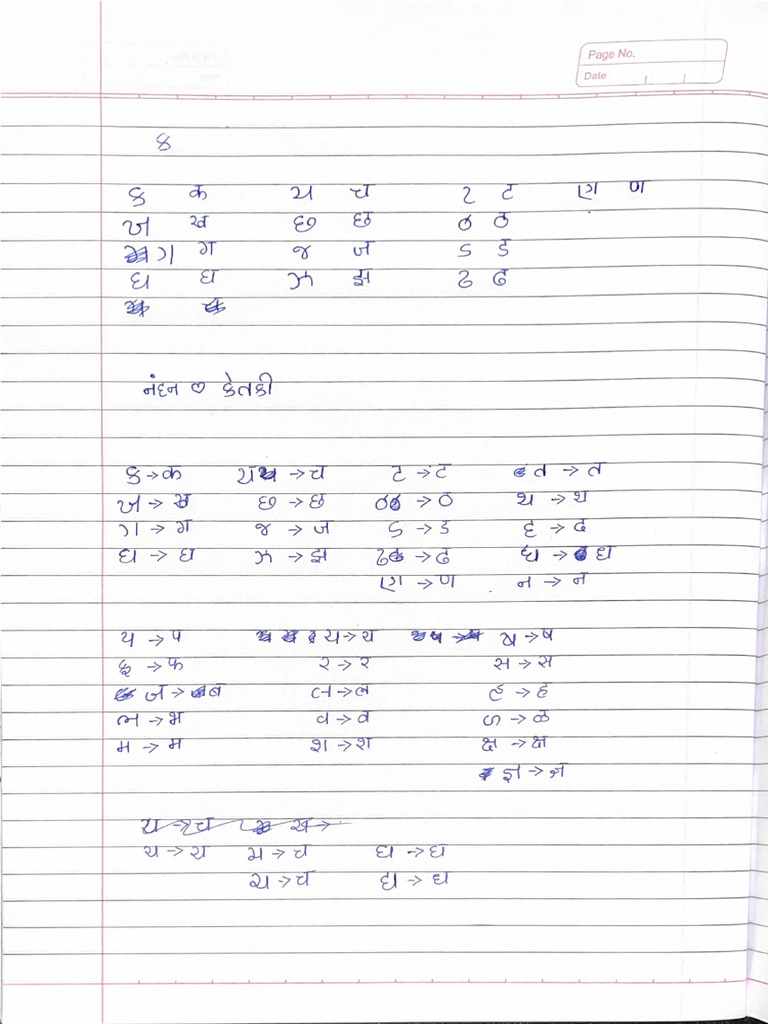 Page No.
Date
ક
ક क ચ च ટ ट ણ ण
ખ ख છ छ ઠ ठ
ગ ग જ ज ડ ड
ઘ घ ઝ झ ઢ ढ
નંદન ♡ કેતકી
ક → क ચ → च ટ → ट ત → त
ખ → ख છ → छ ઠ → ठ થ → थ
ગ → ग જ → ज ડ → ड દ → द
ઘ → घ ઝ → झ ઢ → ढ ધ → ध
ણ → ण ન → न
પ → प ય → य ષ → ष
ફ → फ ર → र સ → स
બ → ब લ → ल હ → ह
ભ → भ વ → व ળ → ळ
મ → म શ → श ક્ષ → क्ष
જ્ઞ → ज्ञ